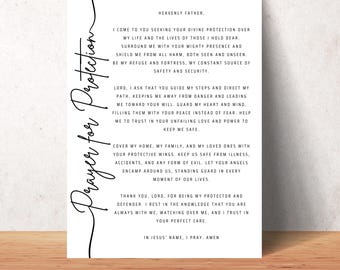 Prayer for Protection
HEAVENLY FATHER,
I COME TO YOU SEEKING YOUR DIVINE PROTECTION OVER
MY LIFE AND THE LIVES OF THOSE I HOLD DEAR.
SURROUND ME WITH YOUR MIGHTY PRESENCE AND
SHIELD ME FROM ALL HARM, BOTH SEEN AND UNSEEN.
BE MY REFUGE AND FORTRESS, MY CONSTANT SOURCE OF
SAFETY AND SECURITY.
LORD, I ASK THAT YOU GUIDE MY STEPS AND DIRECT MY
PATH, KEEPING ME AWAY FROM DANGER AND LEADING
ME TOWARD YOUR WILL. GUARD MY HEART AND MIND,
FILLING THEM WITH YOUR PEACE INSTEAD OF FEAR. HELP
ME TO TRUST IN YOUR UNFAILING LOVE AND POWER TO
KEEP ME SAFE.
COVER MY HOME, MY FAMILY, AND MY LOVED ONES WITH
YOUR PROTECTIVE WINGS. KEEP US SAFE FROM ILLNESS,
ACCIDENTS, AND ANY FORM OF EVIL. LET YOUR ANGELS
ENCAMP AROUND US, STANDING GUARD IN EVERY
MOMENT OF OUR LIVES.
THANK YOU, LORD, FOR BEING MY PROTECTOR AND
DEFENDER. I REST IN THE KNOWLEDGE THAT YOU ARE
ALWAYS WITH ME, WATCHING OVER ME, AND I TRUST IN
YOUR PERFECT CARE.
IN JESUS' NAME, I PRAY. AMEN